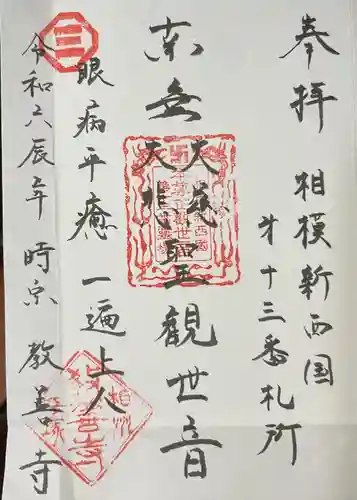 奉拝
相模新西国
才十三番札所
南無大慈大悲聖観世音
眼病平癒 一遍上人
令和六辰年 時宗 教善寺
三
相州